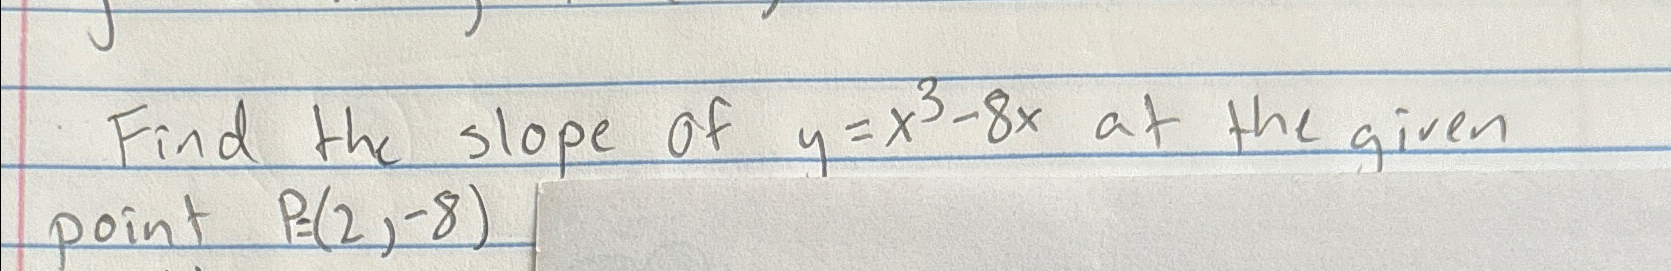 Find the slope of y=x³-8x at the given
point P=(2,-8)